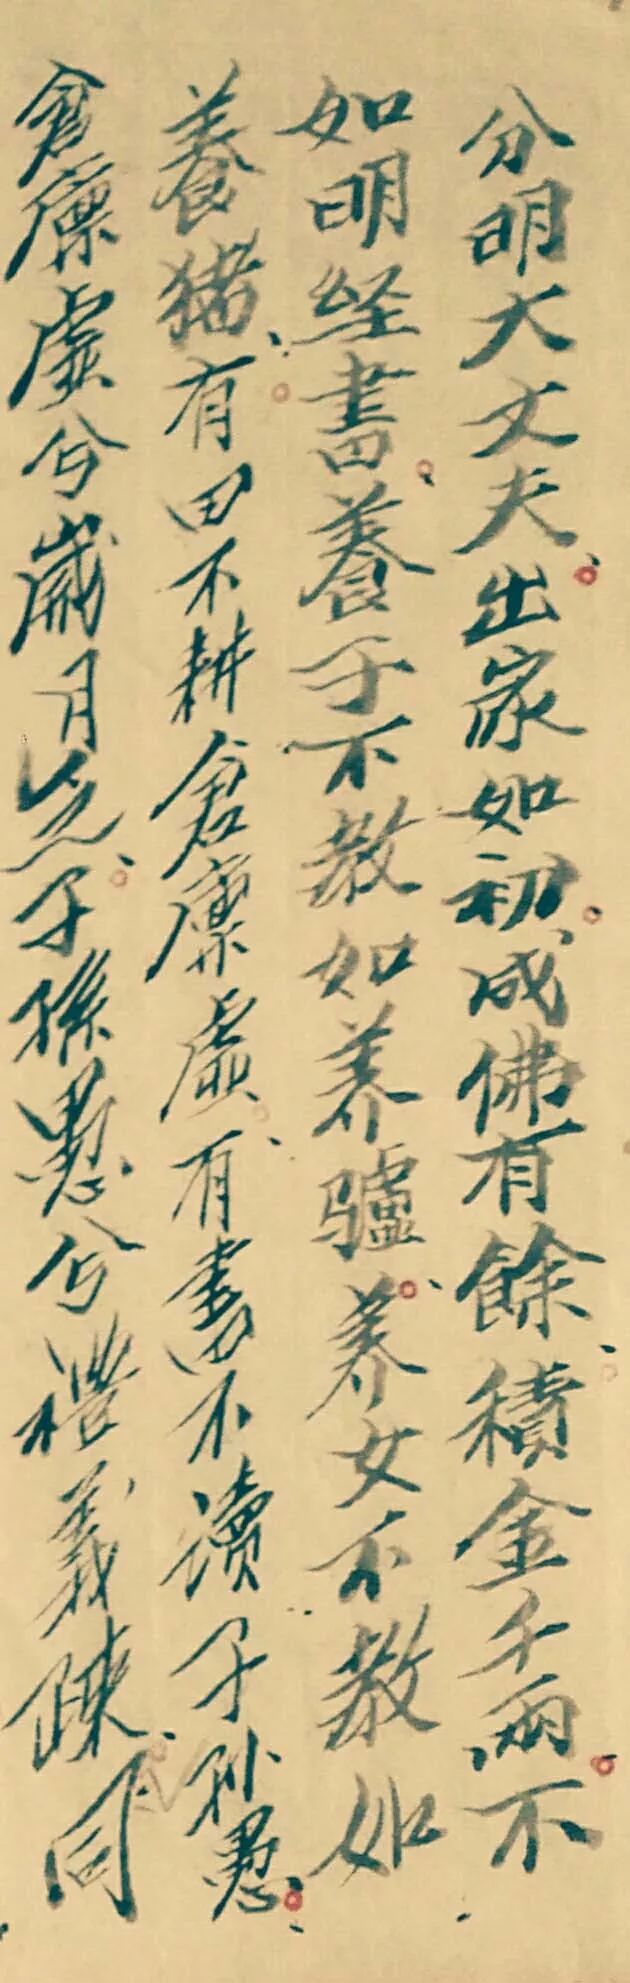 分明大丈夫出家如初成佛有餘積金千兩不
如明经書養子不教如养驢养女不教如
養猪有田不耕倉廪虚有書不读子孙愚
倉廪虚兮歲月乏子孫愚兮禮義疎同